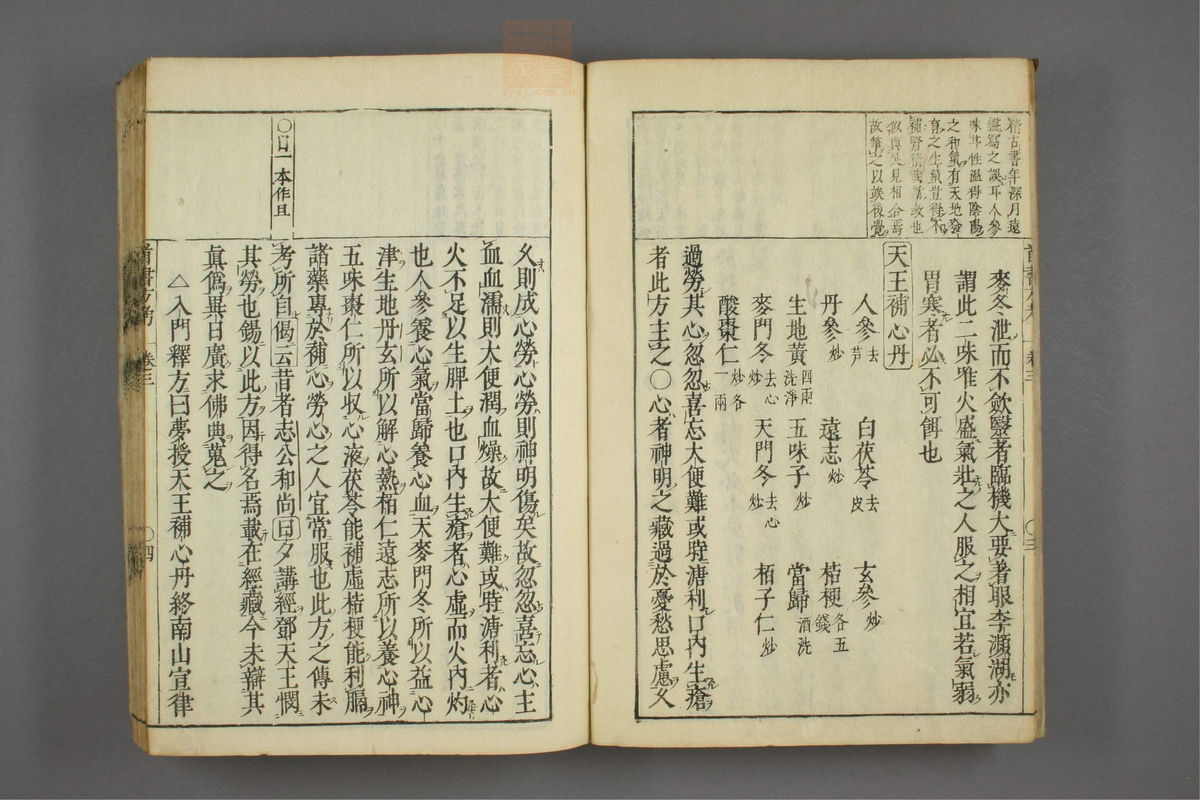 精古書年深月遠
盤寫之誤耳人參
味甘性溫得陰陽
之和氣有天地發
育之生氣豈得不
補腎精哉
似與吳見相合焉
故筆之以竢後覺
麥冬泄而不斂毉者臨機大要著眼李瀕湖亦
謂此二味唯火盛氣壯之人服之相宜若氣弱
胃寒者必不可餌也
天王補心丹
人參去芦 白茯苓去皮 玄參炒
丹參炒 遠志炒 桔梗各五錢
生地黃四兩洗淨 五味子炒 當歸酒洗
麥門冬去心炒 天門冬去心 栢子仁炒
酸棗仁炒各一兩
過勞其心忽忽喜忘大便難或時溏利口內生瘡
者此方主之○心者神明之藏過於憂愁思慮久
首書方考 卷三 ○三
久則成心勞心勞則神明傷矣故忽忽喜忘心主
血血濡則大便潤血燥故大便難或時溏利者心
火不足以生脾土也口內生瘡者心虛而火內灼
也人參養心氣當歸養心血天麥門冬所以益心
津生地丹玄所以解心熱栢仁遠志所以養心神
五味棗仁所以收心液茯苓能補虛桔梗能利膈
諸藥專於補心勞心之人宜常服也此方之傳未
考所自偈云昔者志公和尚日夕講經鄧天王憫
其勞也錫以此方因得名焉載在經藏今未辯其
真偽異日廣求佛典蒐之
△入門釋方曰夢授天王補心丹終南山宣律
○日一本作旦
首書方考 卷三 ○四